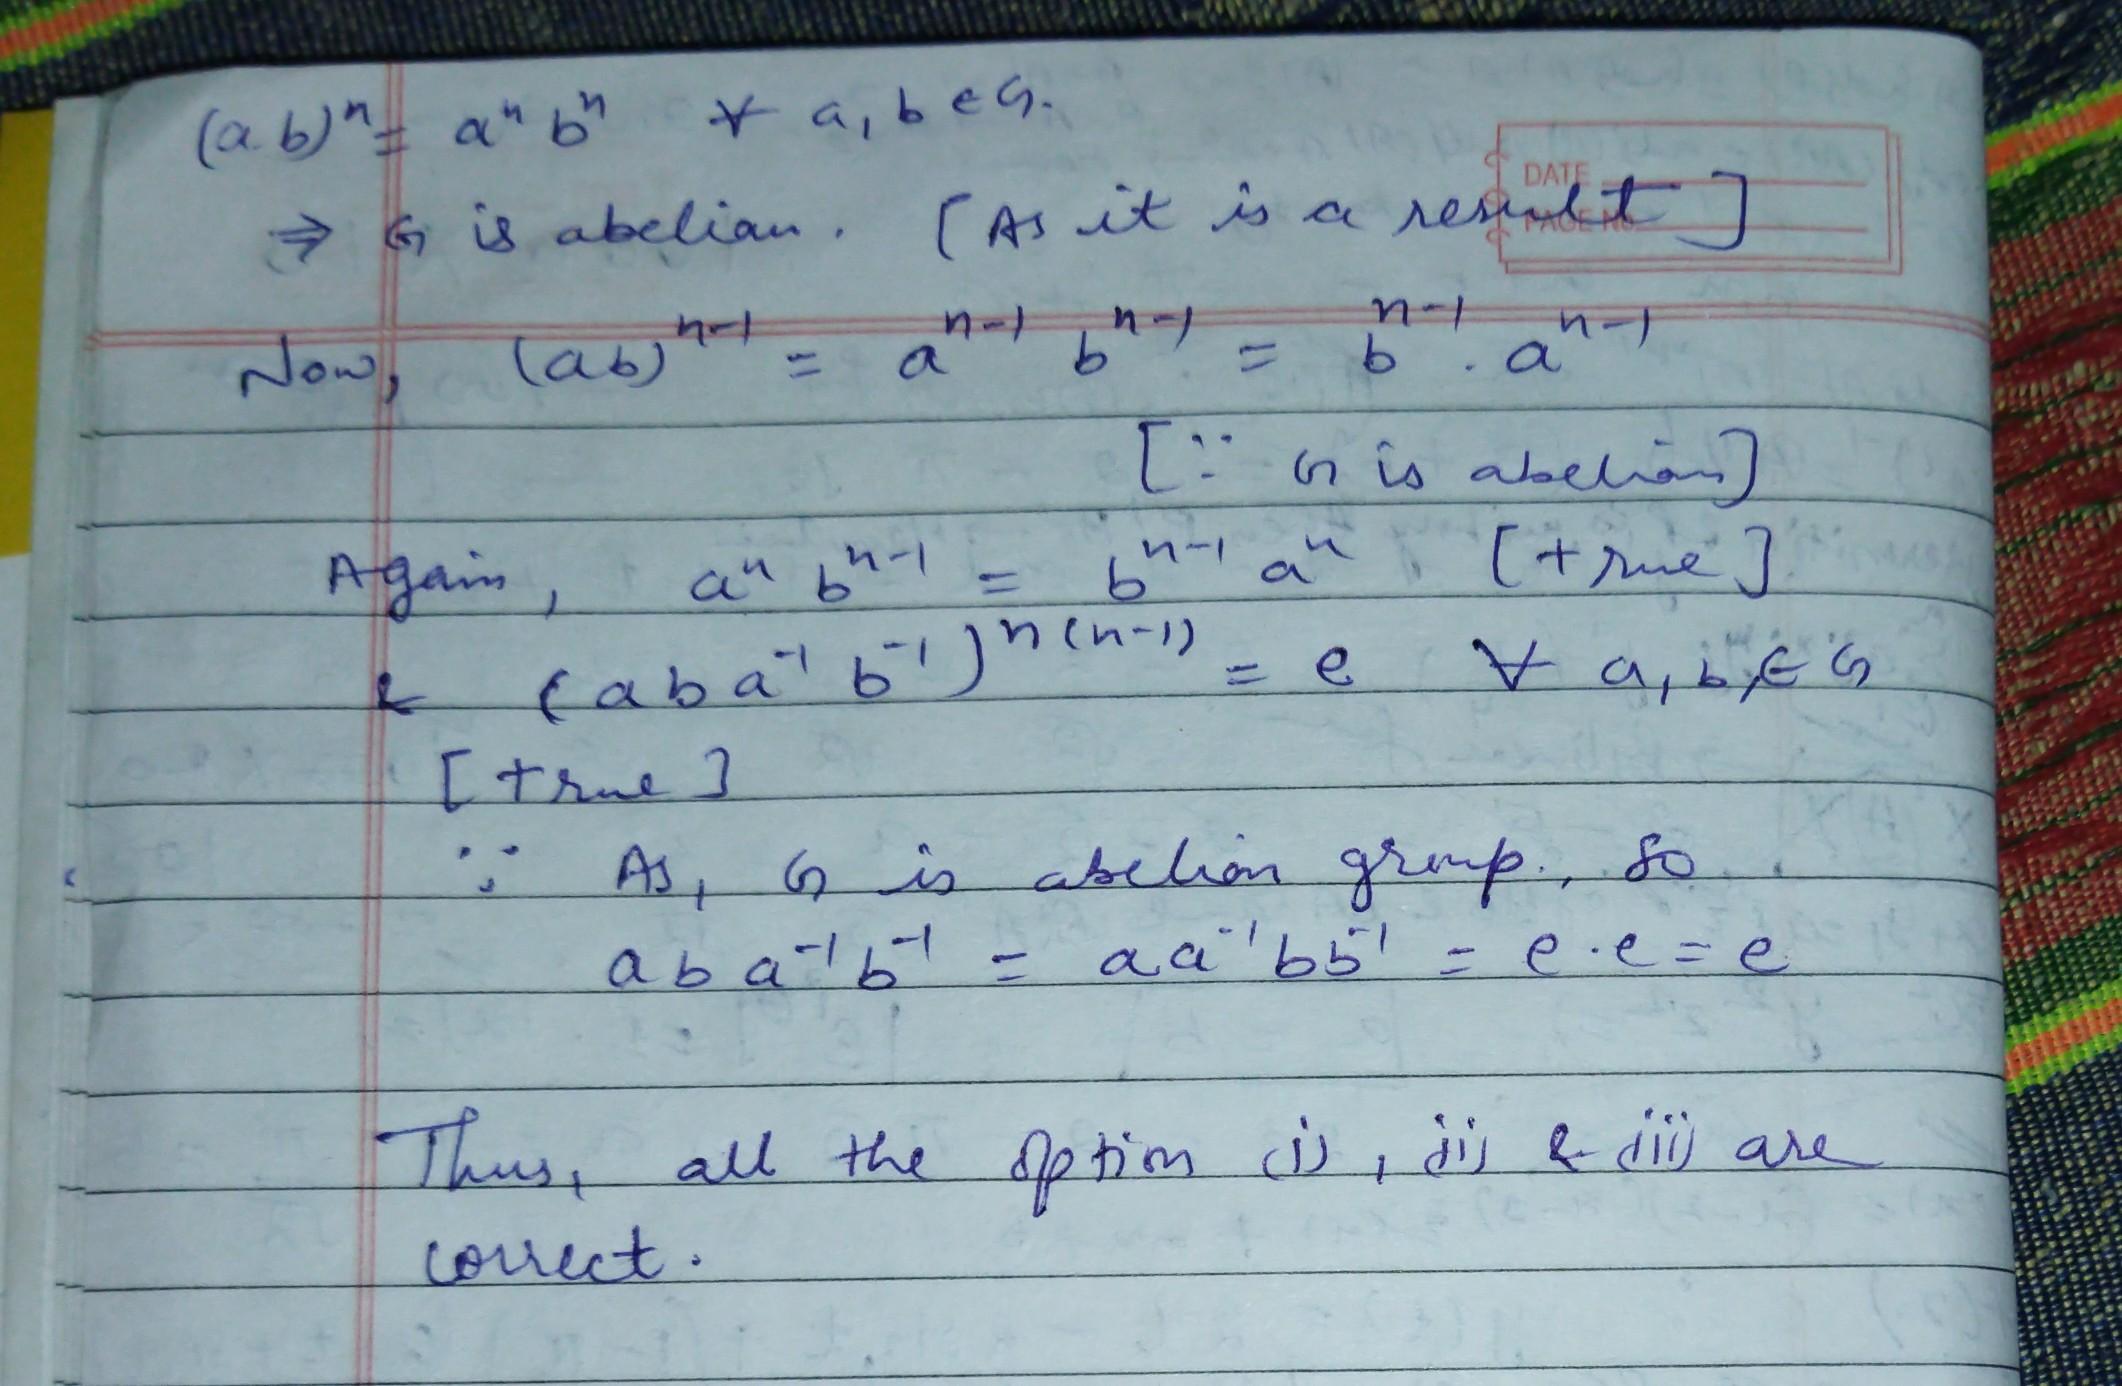 (a.b)ⁿ = aⁿ bⁿ ∀ a, b ∈ G.
DATE
PAGE NO.
⇒ G is abelian. [As it is a result]
Now, (ab)ⁿ⁻¹ = aⁿ⁻¹ bⁿ⁻¹ = bⁿ⁻¹ . aⁿ⁻¹
[∵ G is abelian]
Again, aⁿ bⁿ⁻¹ = bⁿ⁻¹ aⁿ [true]
& (a b a⁻¹ b⁻¹)ⁿ⁽ⁿ⁻¹⁾ = e ∀ a, b, ∈ G
[true]
∵ As, G is abelian group., so
a b a⁻¹ b⁻¹ = a a⁻¹ b b⁻¹ = e . e = e
Thus, all the option (i), (ii) & (iii) are
correct.